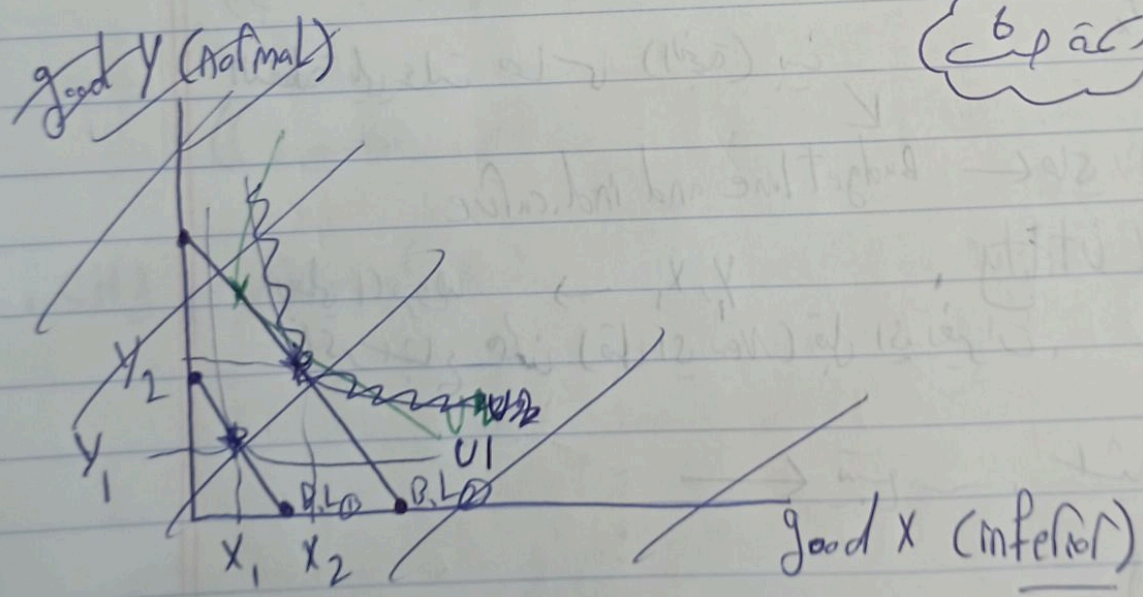 good Y (normal)
Y2
Y1
U1
B.L①
B.L②
X1
X2
good X (inferior)